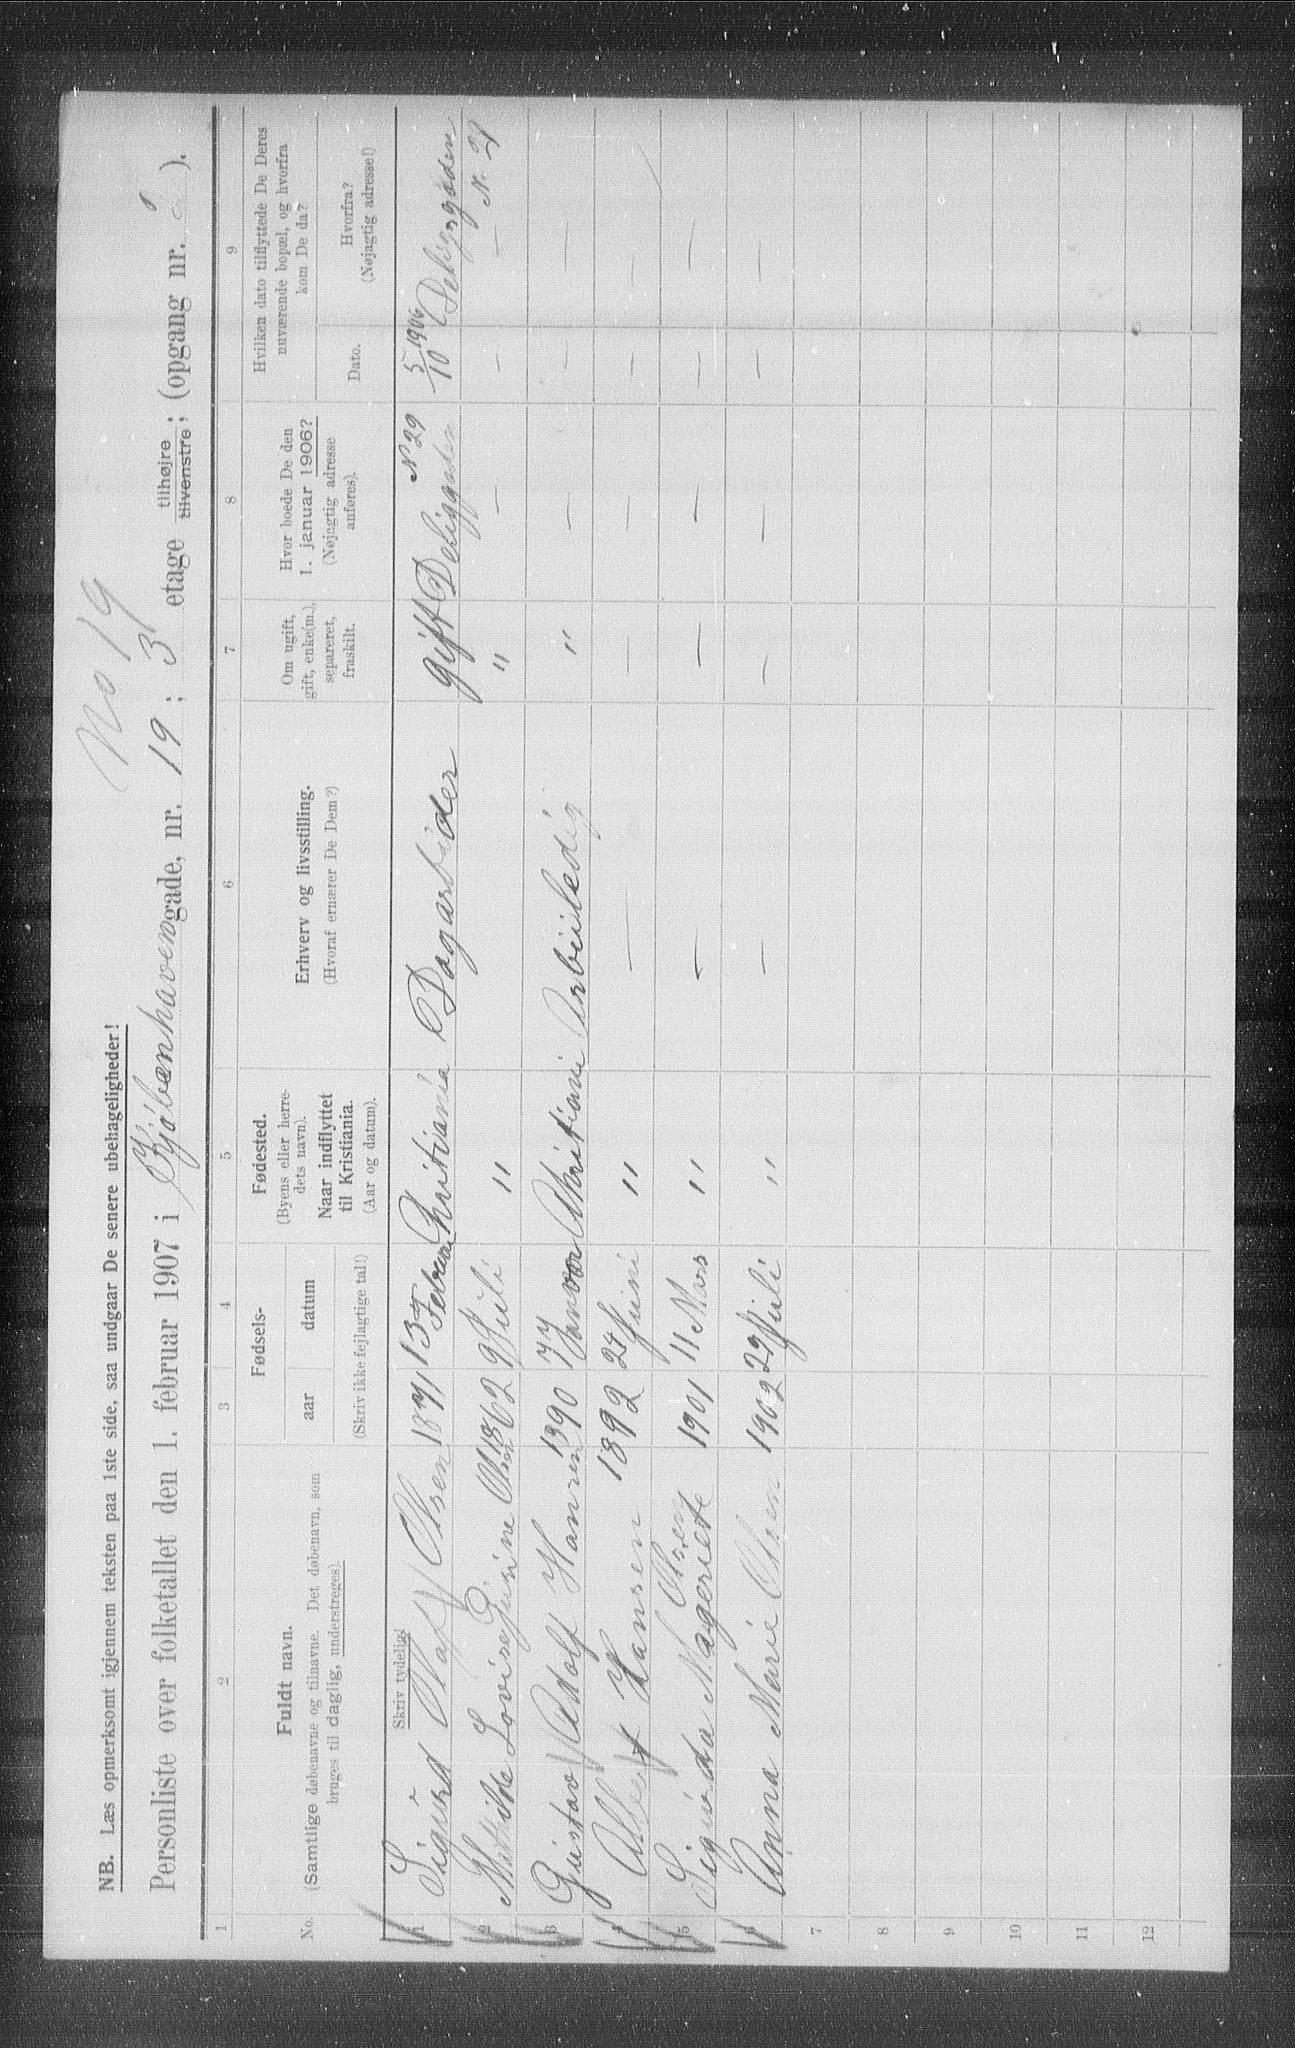 No 19
NB. Læs opmerksomt igjennem teksten paa 1ste side, saa undgaar De senere ubehageligheder!
Personliste over folketallet den 1. februar 1907 i Kjøbenhavengade, nr. 19 ; 3 etage tilhøjre tilvenstre; (opgang nr. ).
1 2 3 4 5 6 7 8 9
No.
Fuldt navn.
(Samtlige døbenavne og tilnavne. Det døbenavn, som
bruges til daglig, understreges).
Fødsels-
aar datum
(Skriv ikke fejlagtige tal!)
Fødested.
(Byens eller herre-
dets navn).
Naar indflyttet
til Kristiania.
(Aar og datum).
Erhverv og livsstilling.
(Hvoraf ernærer De Dem?)
Om ugift,
gift, enke(m.),
separeret,
fraskilt.
Hvor boede De den
1. januar 1906?
(Nøjagtig adresse
anføres).
Hvilken dato tilflyttede De Deres
nuværende bopæl, og hvorfra
kom De da?
Dato.
Hvorfra?
(Nøjagtig adresse!)
Skriv tydelig!
1 Sigurd Olaf Olsen 1871 13 Februar Christiania Dagarbider gift N 29 5/10 1906
2 Mathilde Lovise Olsen 1862 9 Juli " " — — — N.
3 Gustav Adolf Hansen 1890 Januar Christiani Arbeiledig " — — —
4 Albert Hansen 1892 24 Juni " — — — — —
5 Sigrida Mageriete Olsen 1901 11 Mars " — — — — —
6 Anna Marie Olsen 1902 29 Juli " — — — — —
7
8
9
10
11
12